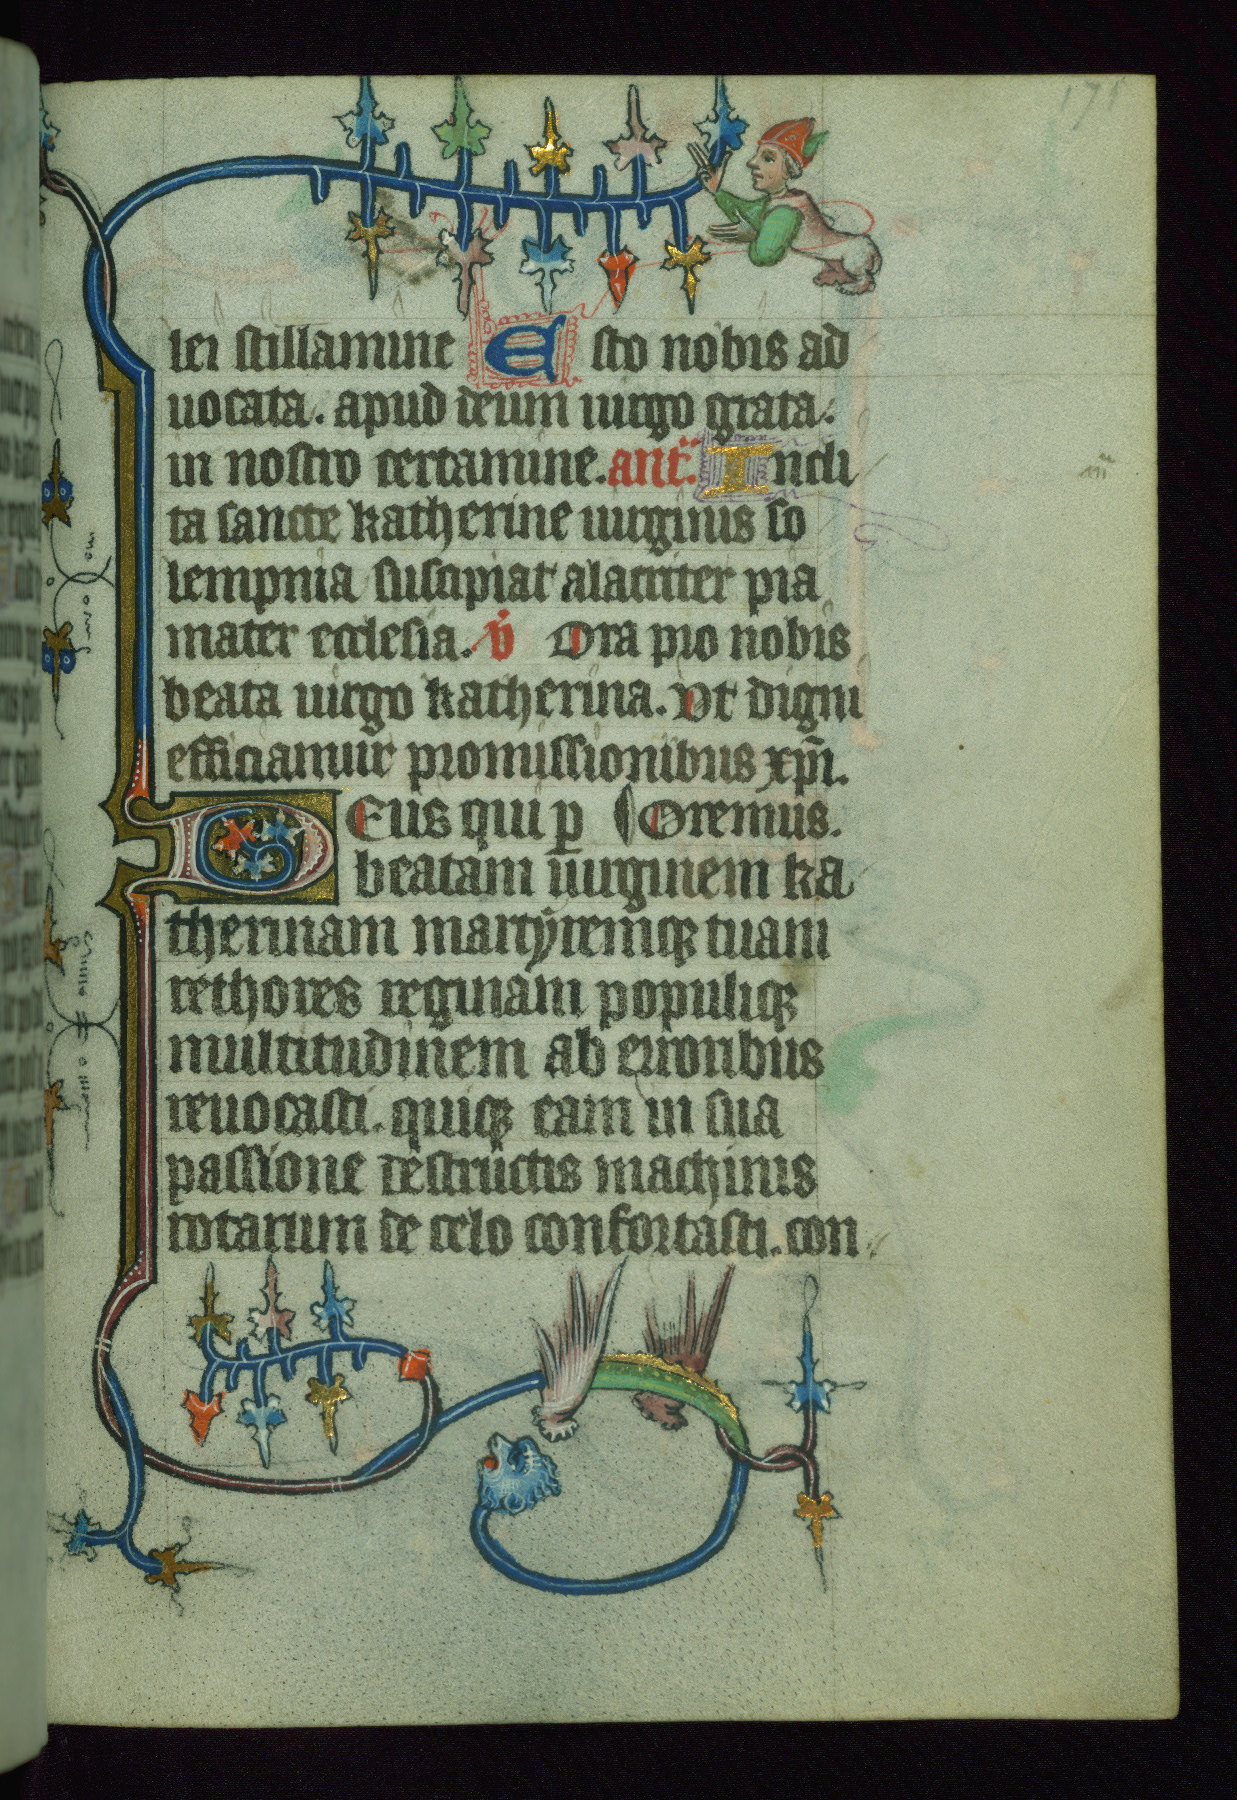 171
lei stillamine Esto nobis ad
uocata. apud deum uirgo grata.
in nostro certamine. ant. Incli
ta sancte katherine uirginis so
lempnia suscipiat alacriter pia
mater ecclesia. v̇ Ora pro nobis
beata uirgo katherina. Vt digni
efficiamur promissionibus xp̄i.
DEus qui p Oremus.
beatam uirginem ka
therinam martyremqꝫ tuam
rethores reginam populiqꝫ
multitudinem ab erroribus
reuocasti. quiqꝫ eam in sua
passione destructis machinis
rotarum de celo confortasti. con